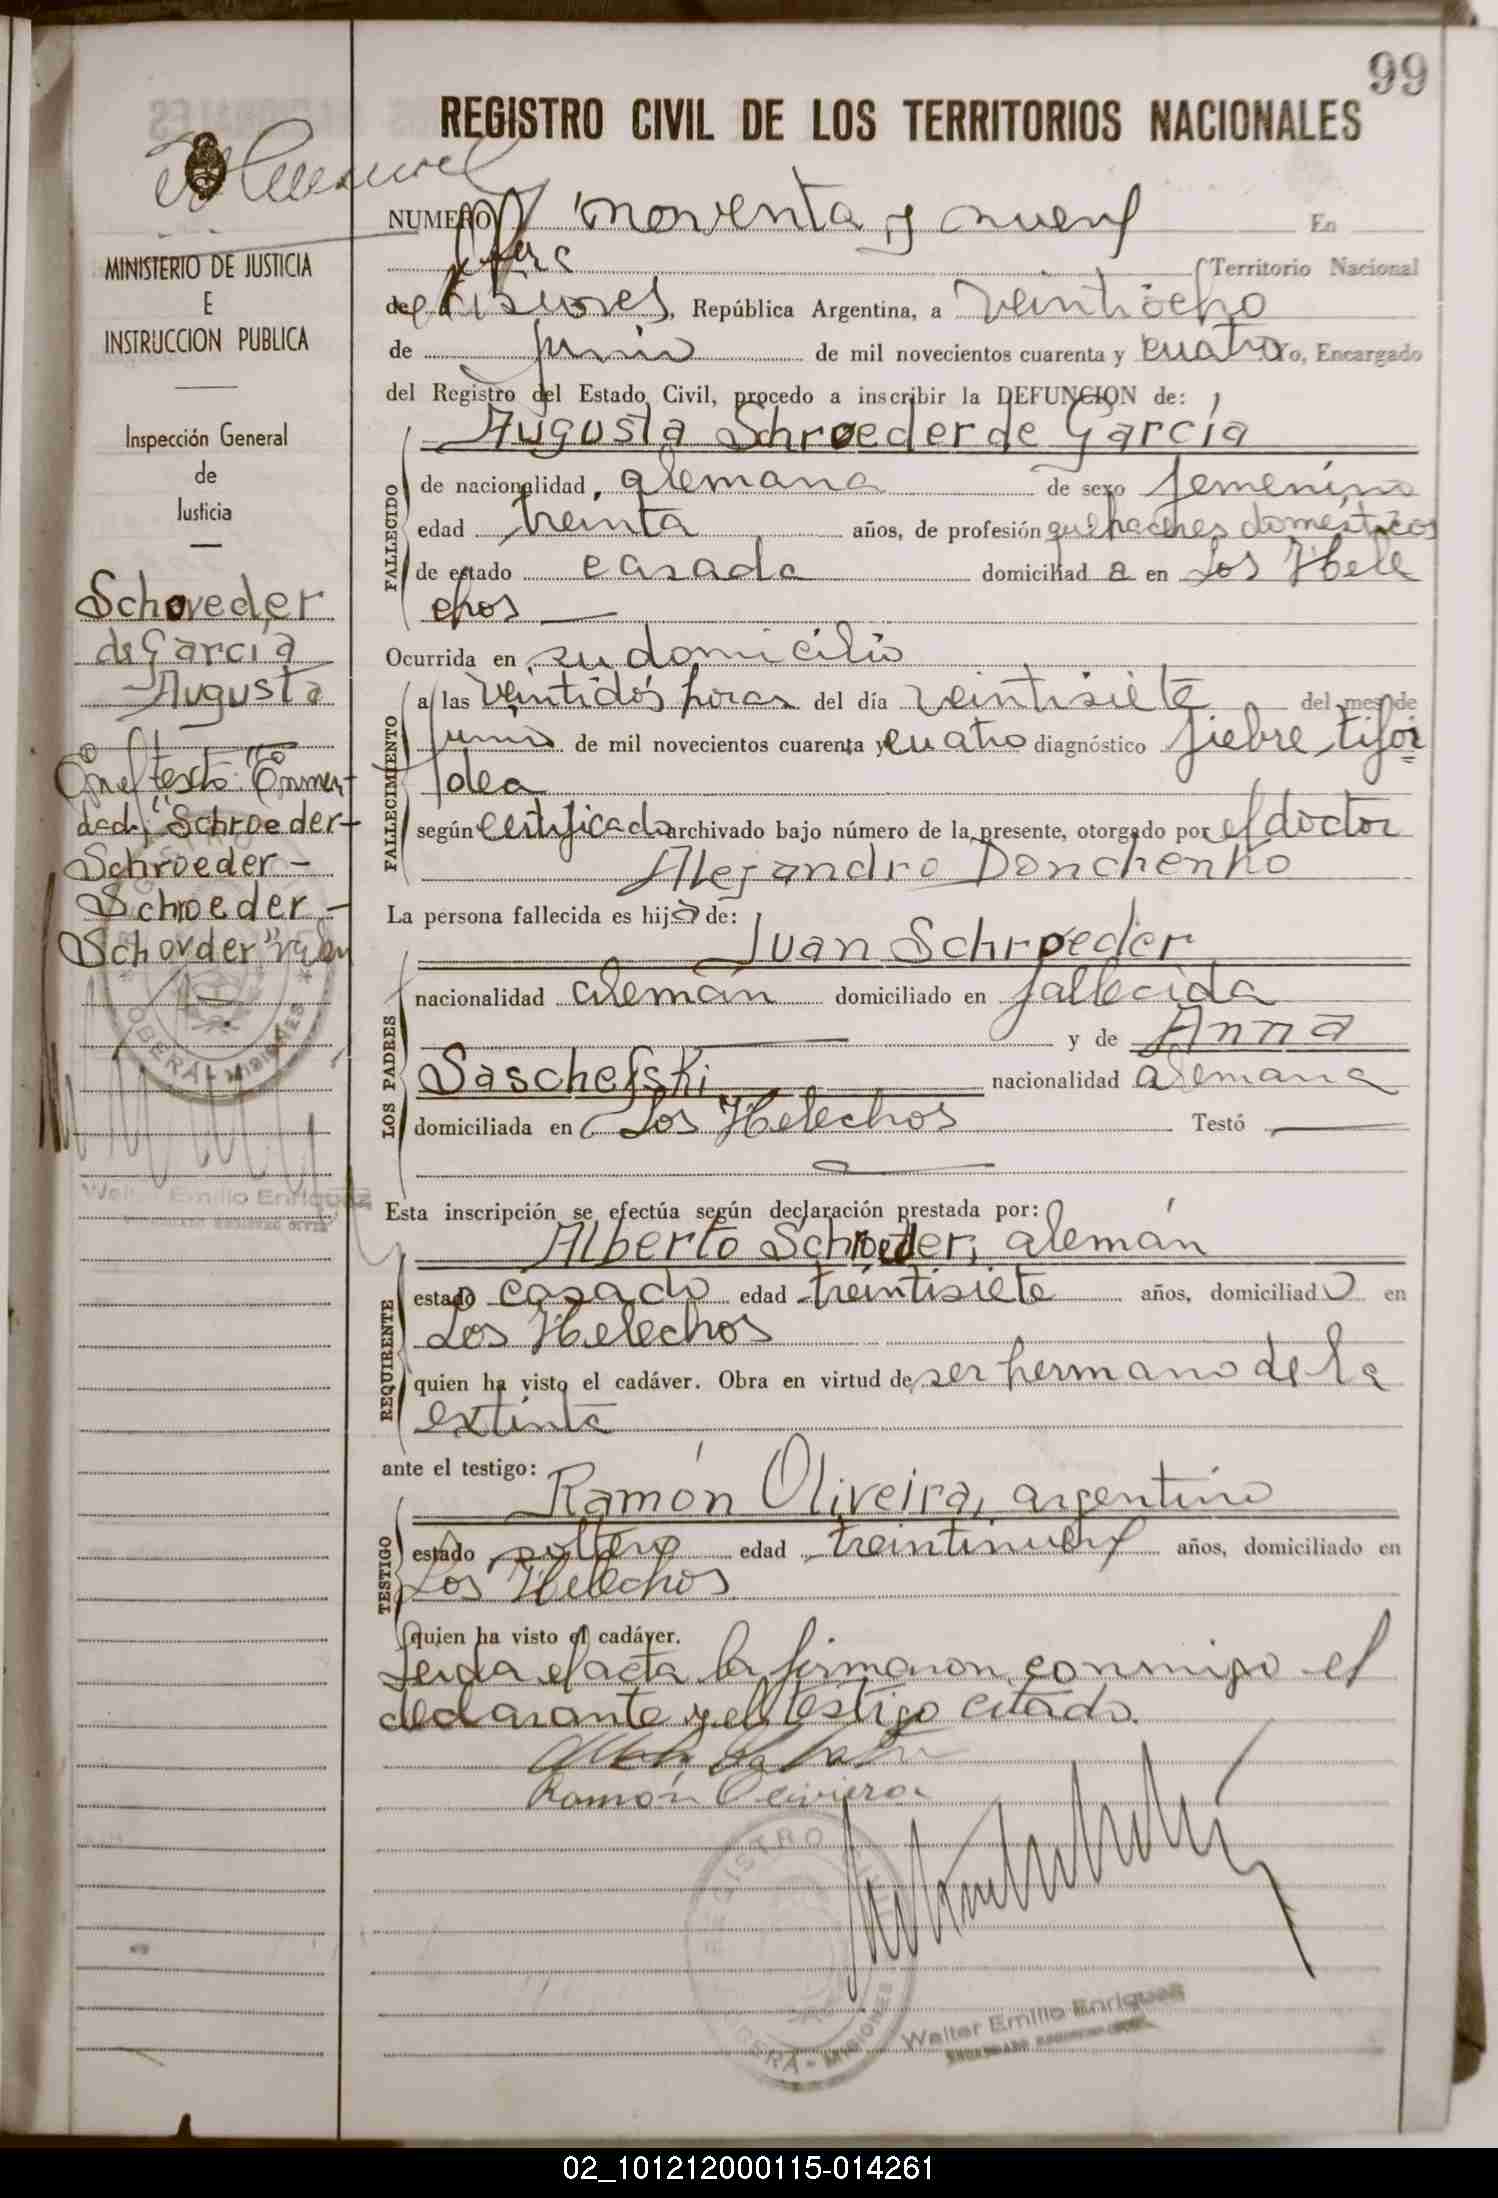 99
REGISTRO CIVIL DE LOS TERRITORIOS NACIONALES
NUMERO noventa y nueve En
Territorio Nacional
de Misiones, República Argentina, a veintiocho
de junio de mil novecientos cuarenta y cuatro Yo, Encargado
del Registro del Estado Civil, procedo a inscribir la DEFUNCION de:
Augusta Schroeder de García
FALLECIDO
de nacionalidad, alemana de sexo femenino
edad treinta años, de profesión quehaceres domésticos
de estado casada domiciliad a en Los Hele
chos
Ocurrida en su domicilio
FALLECIMIENTO
a las veintidós horas del día veintisiete del mes de
junio de mil novecientos cuarenta y cuatro diagnóstico fiebre tifoi
dea
según certificado archivado bajo número de la presente, otorgado por el doctor
Alejandro Donchenko
La persona fallecida es hija de:
Juan Schroeder
LOS PADRES
nacionalidad alemán domiciliado en fallecida
y de Anna
Saschefski nacionalidad alemana
domiciliada en Los Helechos Testó
Esta inscripción se efectúa según declaración prestada por:
Alberto Schroeder, alemán
REQUIRENTE
estado casado edad treintisiete años, domiciliado en
Los Helechos
quien ha visto el cadáver. Obra en virtud de ser hermano de la
extinta
ante el testigo:
Ramón Oliveira, argentino
TESTIGO
estado soltero edad treintinueve años, domiciliado en
Los Helechos
quien ha visto el cadáver.
Leida el acta la firmaron conmigo el
declarante y el testigo citado.
Ramón Oliviera
REGISTRO CIVIL
OBERA - MISIONES
Walter Emilio Enriquez
MINISTERIO DE JUSTICIA
E
INSTRUCCION PUBLICA
Inspección General
de
Justicia
Schoveder
de García
Augusta
En el texto: "Enmen-
dado, "Schroeder-
Schroeder-
Schroeder-
Schorder" valen
OBERA - MISIONES
Walter Emilio Enriquez
02_101212000115-014261